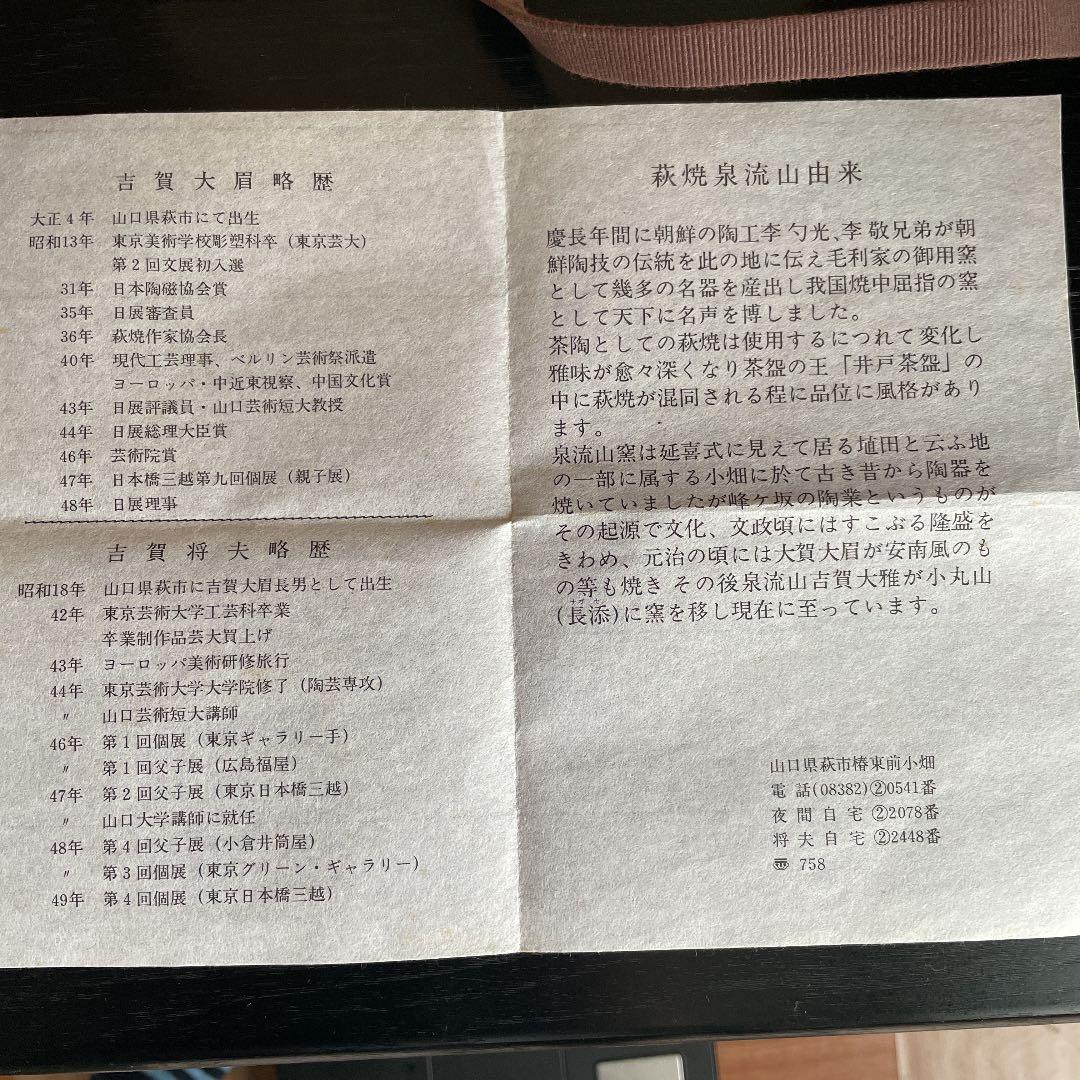 吉賀大眉略歴
大正4年 山口県萩市にて出生
昭和13年 東京美術学校彫塑科卒（東京芸大）
第2回文展初入選
31年 日本陶磁協会賞
35年 日展審査員
36年 萩焼作家協会長
40年 現代工芸理事、ベルリン芸術祭派遣
ヨーロッパ・中近東視察、中国文化賞
43年 日展評議員・山口芸術短大教授
44年 日展総理大臣賞
46年 芸術院賞
47年 日本橋三越第九回個展（親子展）
48年 日展理事
吉賀将夫略歴
昭和18年 山口県萩市に吉賀大眉長男として出生
42年 東京芸術大学工芸科卒業
卒業制作品芸大買上げ
43年 ヨーロッパ美術研修旅行
44年 東京芸術大学大学院修了（陶芸専攻）
〃 山口芸術短大講師
46年 第1回個展（東京ギャラリー手）
〃 第1回父子展（広島福屋）
47年 第2回父子展（東京日本橋三越）
〃 山口大学講師に就任
48年 第4回父子展（小倉井筒屋）
〃 第3回個展（東京グリーン・ギャラリー）
49年 第4回個展（東京日本橋三越）
萩焼泉流山由来
慶長年間に朝鮮の陶工李勺光、李敬兄弟が朝
鮮陶技の伝統を此の地に伝え毛利家の御用窯
として幾多の名器を産出し我国焼中屈指の窯
として天下に名声を博しました。
茶陶としての萩焼は使用するにつれて変化し
雅味が愈々深くなり茶盌の王「井戸茶盌」の
中に萩焼が混同される程に品位に風格があり
ます。
泉流山窯は延喜式に見えて居る埴田と云ふ地
の一部に属する小畑に於て古き昔から陶器を
焼いていましたが峰ケ坂の陶業というものが
その起源で文化、文政頃にはすこぶる隆盛を
きわめ、元治の頃には大賀大眉が安南風のも
の等も焼き その後泉流山吉賀大雅が小丸山
(長添)に窯を移し現在に至っています。
山口県萩市椿東前小畑
電話(08382)②0541番
夜間自宅②2078番
将夫自宅②2448番
〠 758